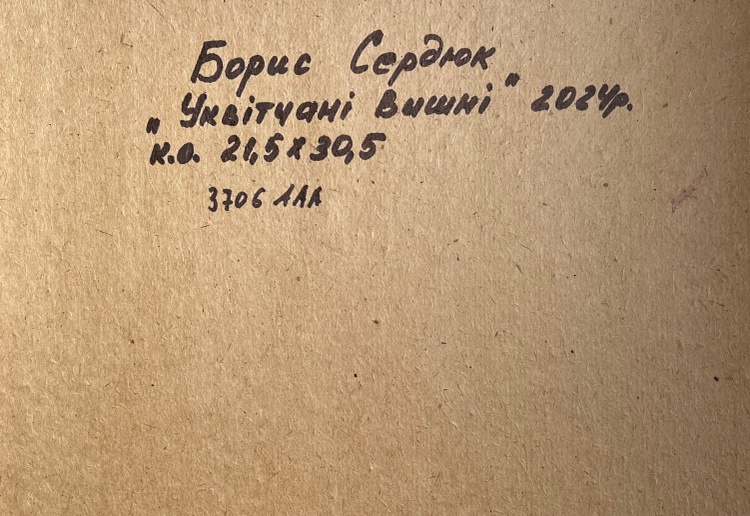 Борис Сердюк
„Уквітчані вишні" 2024р.
к.о. 21,5 х 30,5
3706 ЛАА